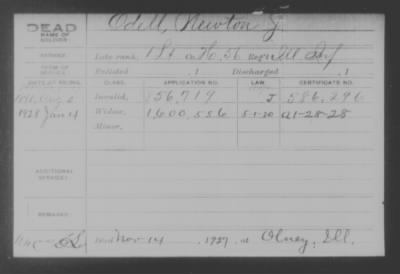 DEAD Odell, Newton J
NAME OF SOLDIER:
SERVICE: Late rank, Co. H, 56 Reg't Ill Inf
TERM OF SERVICE: Enlisted , 1 Discharged , 1
DATE OF FILING. CLASS. APPLICATION NO. LAW. CERTIFICATE NO.
Aug 2 Invalid, 56,719 J 586,296
1928 Jan 14 Widow, 1,600,556 5-1-20 A1-28-28
Minor,
ADDITIONAL SERVICES:
REMARKS:
Died Nov 14, 1927, at Olney, Ill.